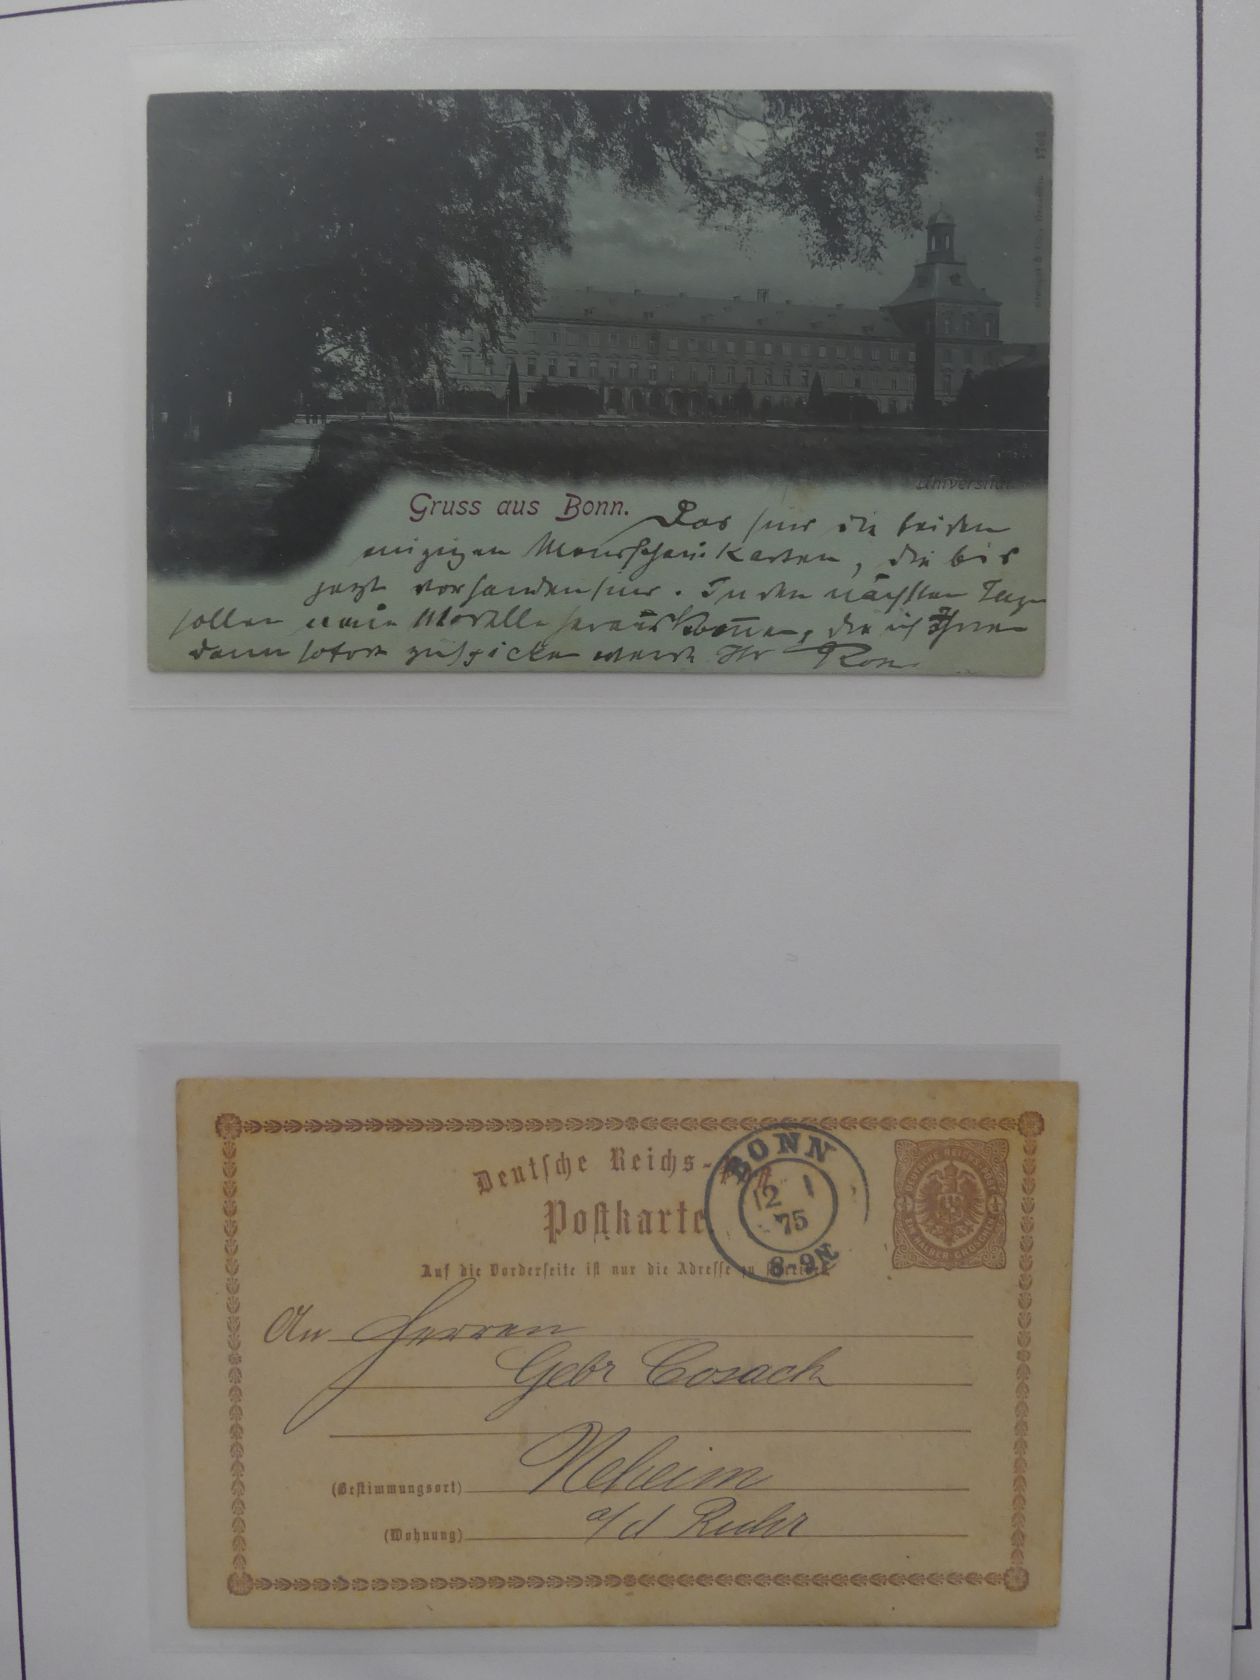 Universität.
Gruss aus Bonn.
Das sind die beiden
einzigen Mondscheinkarten, die bis
jetzt vorhanden sind. In den nächsten Tagen
sollen neue Modelle herauskommen, die ich Ihnen
dann sofort zuschicken werde. Ihr
Deutsche Reichs-Post
Postkarte
Auf die Vorderseite ist nur die Adresse zu schreiben
BONN
12 1
75
8-9N
DEUTSCHE REICHS-POST
EIN HALBER GROSCHEN
An Herren
Gebr Cosack
(Bestimmungsort) Neheim
(Wohnung) a/d Ruhr